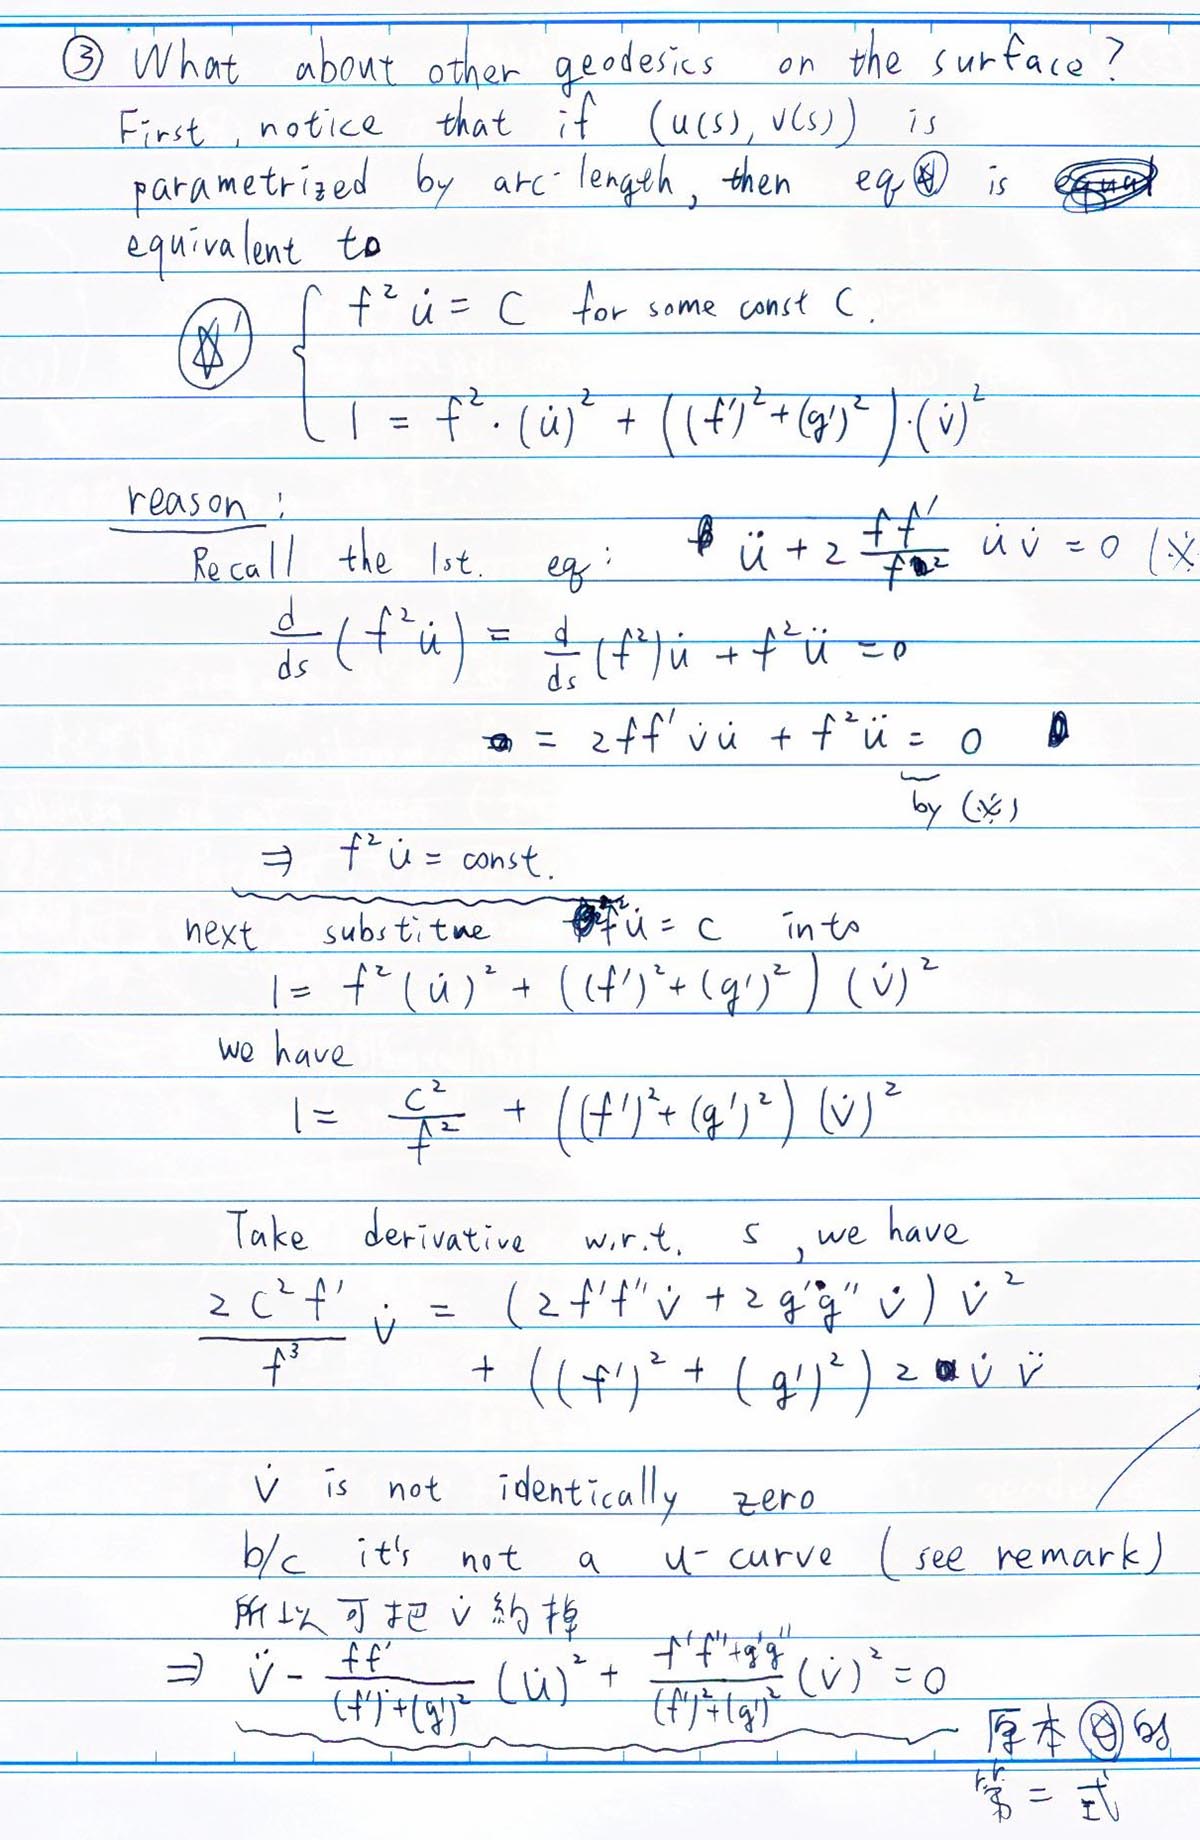 ③ What about other geodesics on the surface?
First, notice that if (u(s), v(s)) is
parametrized by arc-length, then eq ☆ is
equivalent to
☆' { f² u̇ = C for some const C.
1 = f² · (u̇)² + ((f')² + (g')²) · (v̇)²
reason:
Recall the 1st. eq: ü + 2 ff'/f² u̇ v̇ = 0 (※
d/ds (f² u̇) = d/ds (f²) u̇ + f² ü = 0
= 2ff' v̇ u̇ + f² ü = 0
by (※)
⇒ f² u̇ = const.
next substitue f² u̇ = c into
1 = f² (u̇)² + ((f')² + (g')²) (v̇)²
we have
1 = c²/f² + ((f')² + (g')²) (v̇)²
Take derivative w.r.t. s, we have
2c² f'/f³ v̇ = (2f'f'' v̇ + 2g'g'' v̇) v̇²
+ ((f')² + (g')²) 2 v̇ v̈
v̇ is not identically zero
b/c it's not a u-curve (see remark)
所以可把 v̇ 約掉
⇒ v̈ - ff'/((f')² + (g')²) (u̇)² + (f'f'' + g'g'')/((f')² + (g')²) (v̇)² = 0
原本 ☆ 的
第二式